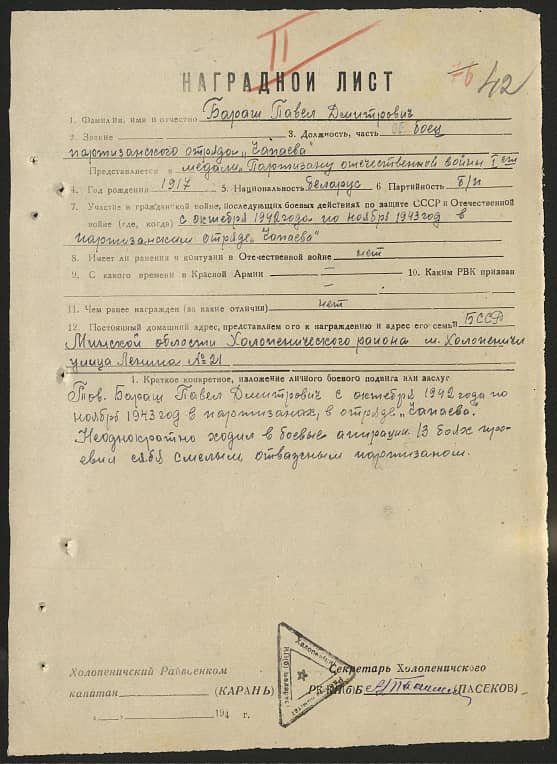 II
76 42
НАГРАДНОЙ ЛИСТ
1. Фамилия, имя и отчество Бараш Павел Дмитрович
2. Звание 3. Должность, часть боец
партизанского отряда „Чапаева“
Представляется к медали Партизану отечественной войны I ст
4. Год рождения 1917 5. Национальность беларус 6. Партийность б/п
7. Участие в гражданской войне, последующих боевых действиях по защите СССР и Отечественной
войне (где, когда) с октября 1942 года по ноябрь 1943 год в
партизанским отряде „Чапаева“
8. Имеет ли ранения и контузии в Отечественной войне нет
9. С какого времени в Красной Армии — 10. Каким РВК призван
—
11. Чем ранее награжден (за какие отличия) нет
12. Постоянный домашний адрес, представляемого к награждению и адрес его семьи БССР
Минской области Холопенического района м. Холопеничи
улица Ленина № 21
1. Краткое конкретное, изложение личного боевого подвига или заслуг
Тов. Бараш Павел Дмитрович с октября 1942 года по
ноябрь 1943 год в партизанах, в отряде „Чапаева“.
Неоднократно ходил в боевые аперации. В боях про-
евил себя смелым отважным партизаном.
Холопеничский Райвоенком
капитан (КАРАНЬ)
„ “ 194 г.
Холопеницкі
Секретарь Холопеничского
РК КП(б)Б (ПАСЕКОВ)